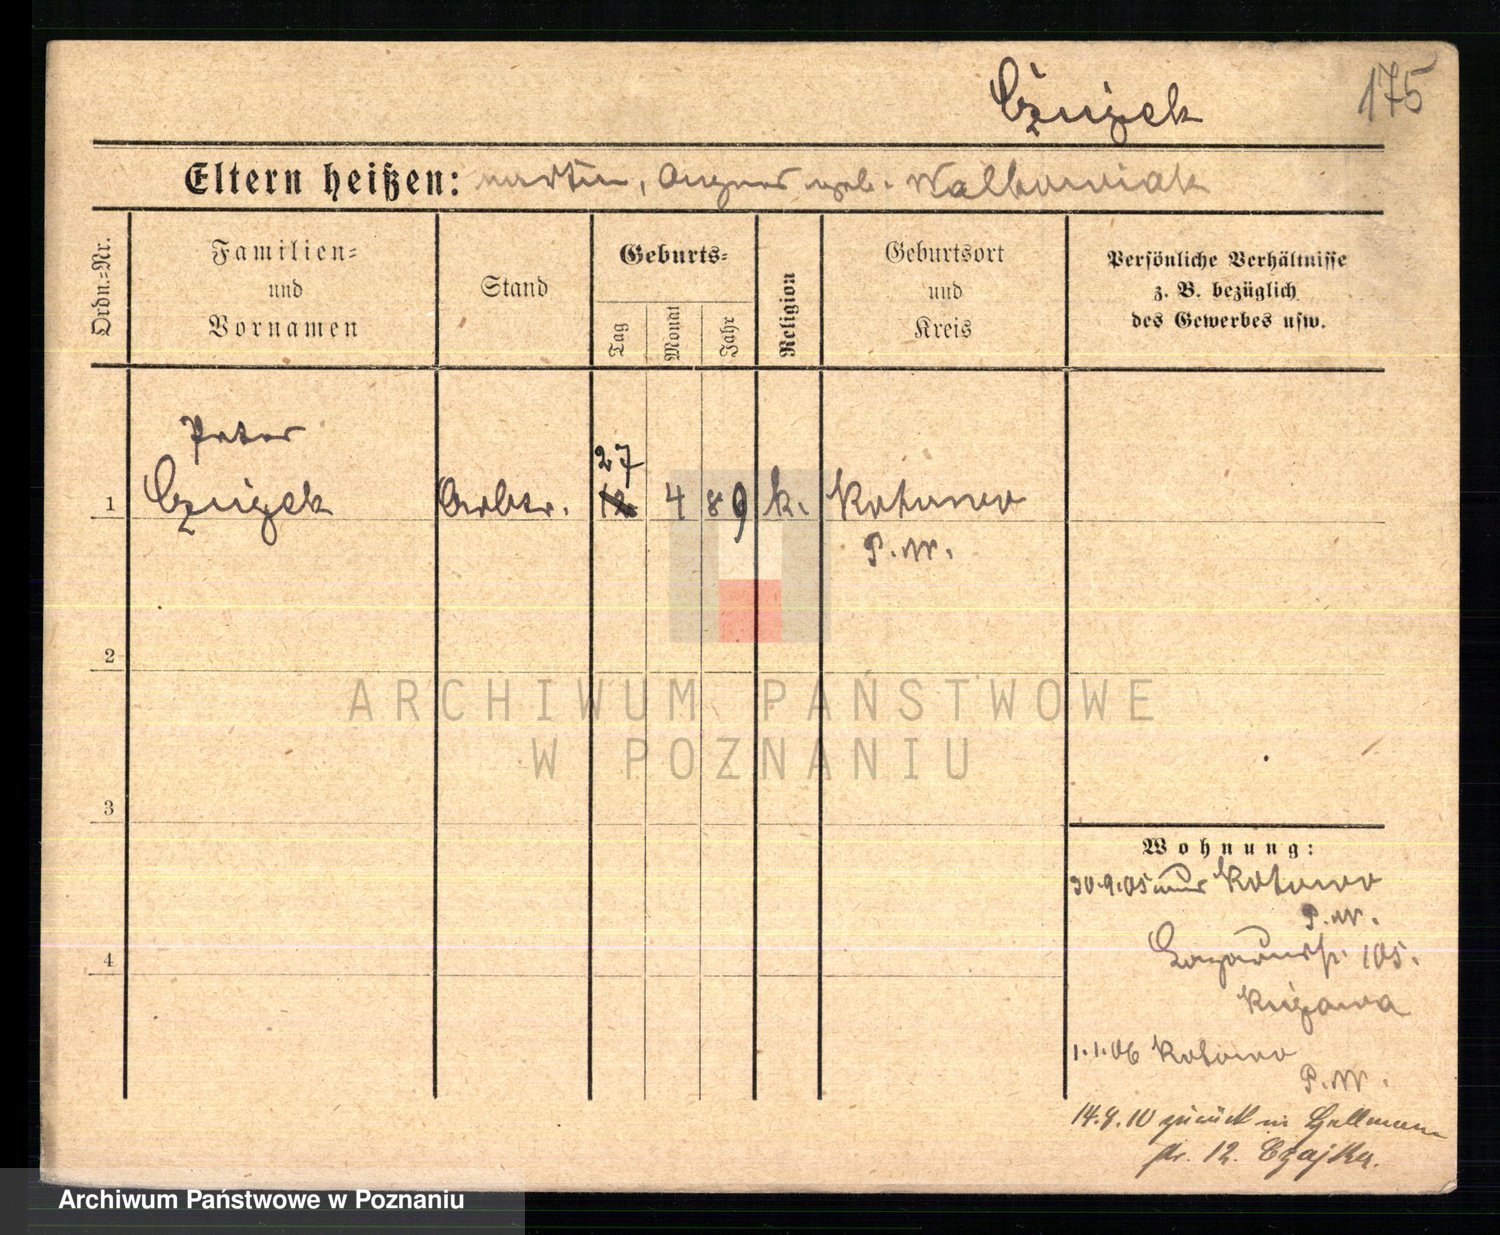 Czujek
175
Eltern heißen: Martin, Agnes geb. Walkowiak
Ordn.=Nr.
Familien=
und
Vornamen
Stand
Geburts=
Tag
Monat
Jahr
Religion
Geburtsort
und
Kreis
Persönliche Verhältnisse
z. B. bezüglich
des Gewerbes usw.
Peter
27
1 Czujek Arbtr. 4 89 k. Kotowo
P. W.
2
3
4
ARCHIWUM PAŃSTWOWE
W POZNANIU
Wohnung:
30.9.05 Kotowo
P. W.
Lazarusstr. 105.
Kujawa
1.1.06 Kotowo
P. W.
14.4.10 zurück in
str. 12. Czajka.
Archiwum Państwowe w Poznaniu